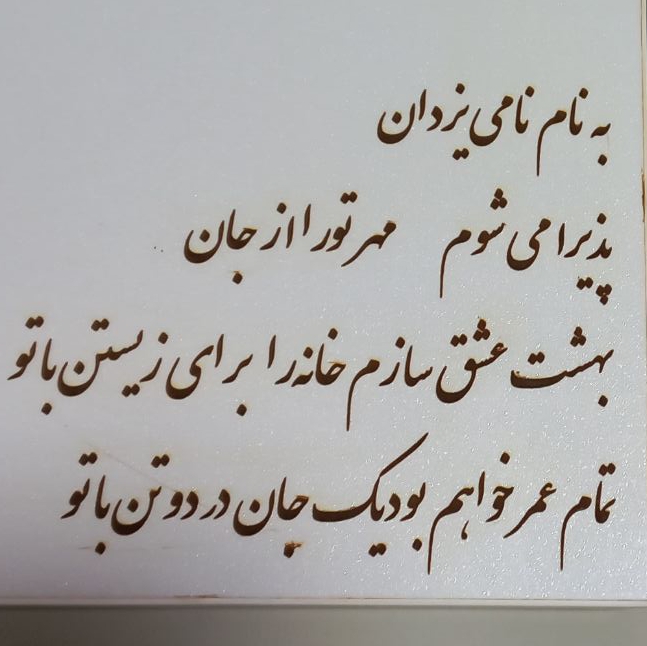 به نام نامی یزدان
پذیرا می شوم مهر تو را از جان
بهشت عشق سازم خانه را برای زیستن با تو
تمام عمر خواهم بود یک جان در دو تن با تو